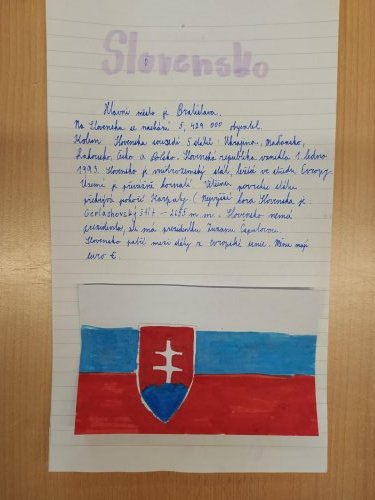 Slovensko
Hlavní město je Bratislava.
Na Slovensku se nachází 5, 429 000 obyvatel.
Kolem Slovenska sousedí 5 států: Ukrajina, Maďarsko,
Rakousko, Česko a Polsko. Slovenská republika vznikla 1. ledna
1993. Slovensko je vnitrozemský stát, leží ve středu Evropy.
Území je převážně hornaté. Většinu povrchu státu
pokrývá pohoří Karpaty (Nejvyšší hora Slovenska je:
Gerlachovský štít - 2655 m.m. Slovensko nemá
prezidenta, ale má prezidentku Zuzanu Čaputovou.
Slovensko patří mezi státy z evropské unie. Měnu mají
euro €.